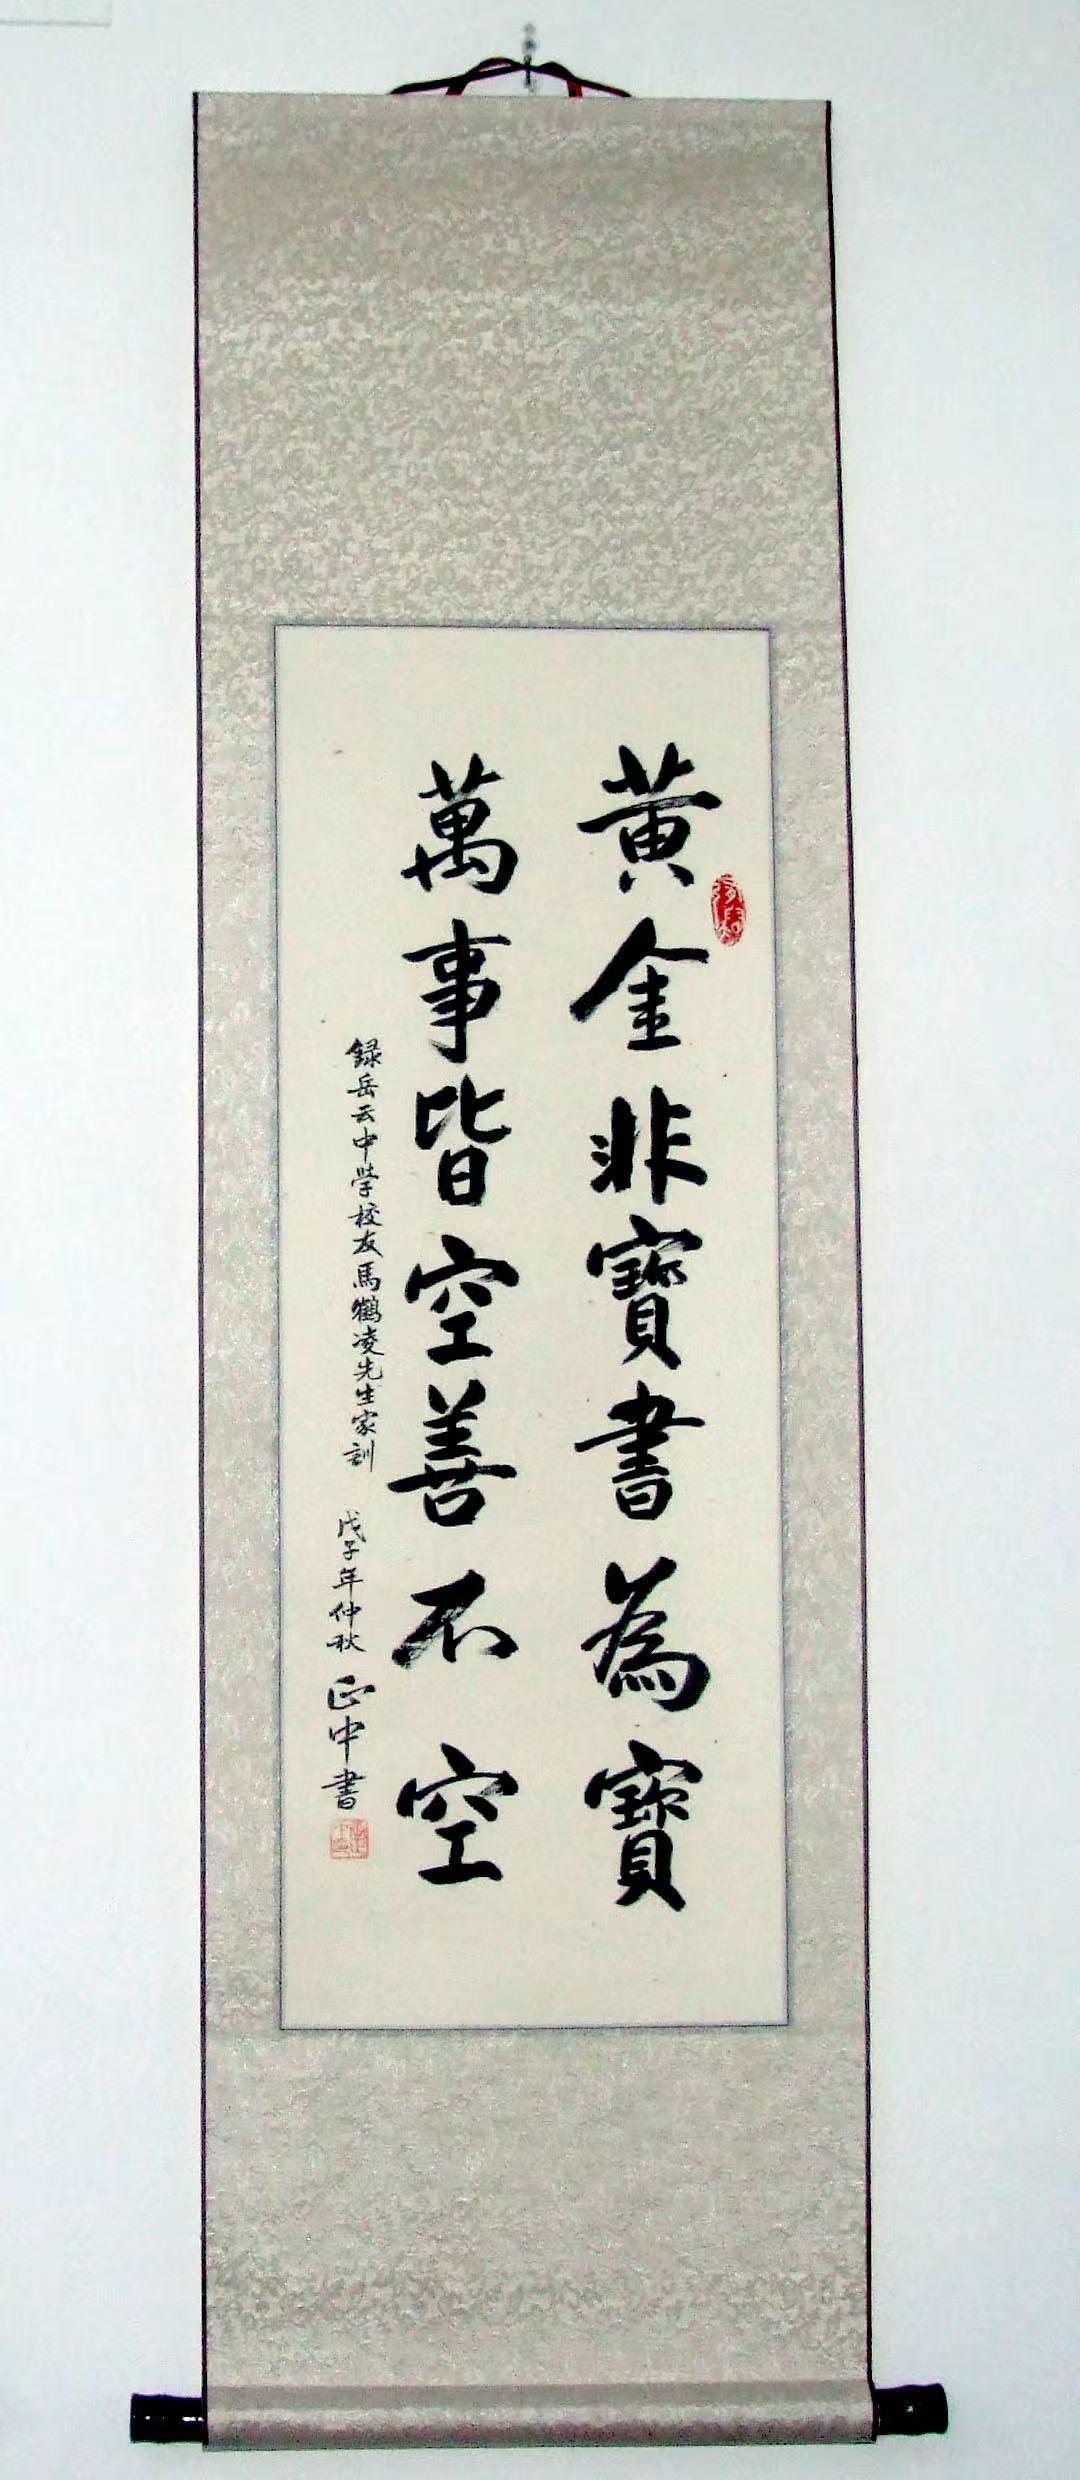 黄金非寶書為寶
萬事皆空善不空
録岳云中学校友馬鶴凌先生家訓
戊子年仲秋 正中書